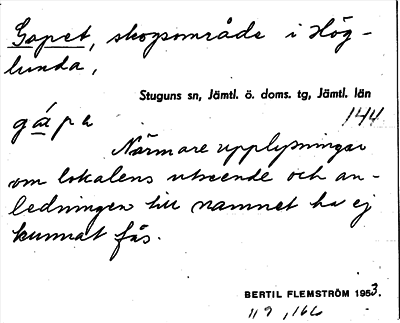 Gapet, skogsområde i Hög-
lunda,
Stuguns sn, Jämtl. ö. doms. tg, Jämtl. län
144
gápa
Närmare upplysningar
om lokalens utseende och an-
ledningen till namnet ha ej
kunnat fås.
BERTIL FLEMSTRÖM 1953.